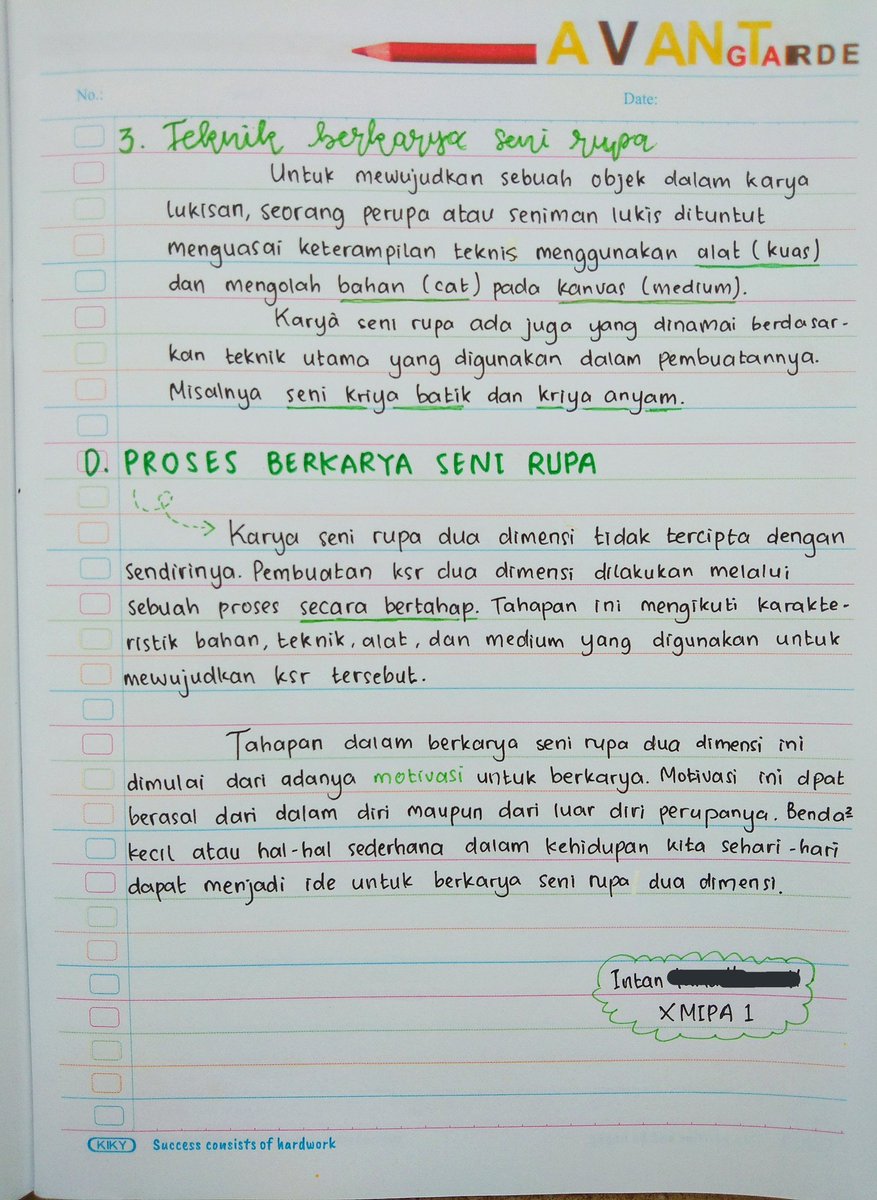 AVANTGARDE
No.:
Date:
3. Teknik berkarya seni rupa
Untuk mewujudkan sebuah objek dalam karya
lukisan, seorang perupa atau seniman lukis dituntut
menguasai keterampilan teknis menggunakan alat (kuas)
dan mengolah bahan (cat) pada kanvas (medium).
Karya seni rupa ada juga yang dinamai berdasar-
kan teknik utama yang digunakan dalam pembuatannya.
Misalnya seni kriya batik dan kriya anyam.
D. PROSES BERKARYA SENI RUPA
Karya seni rupa dua dimensi tidak tercipta dengan
sendirinya. Pembuatan ksr dua dimensi dilakukan melalui
sebuah proses secara bertahap. Tahapan ini mengikuti karakte-
ristik bahan, teknik, alat, dan medium yang digunakan untuk
mewujudkan ksr tersebut.
Tahapan dalam berkarya seni rupa dua dimensi ini
dimulai dari adanya motivasi untuk berkarya. Motivasi ini dpat
berasal dari dalam diri maupun dari luar diri perupanya. Benda²
kecil atau hal-hal sederhana dalam kehidupan kita sehari-hari
dapat menjadi ide untuk berkarya seni rupa dua dimensi.
Intan
X MIPA 1
KIKY Success consists of hardwork